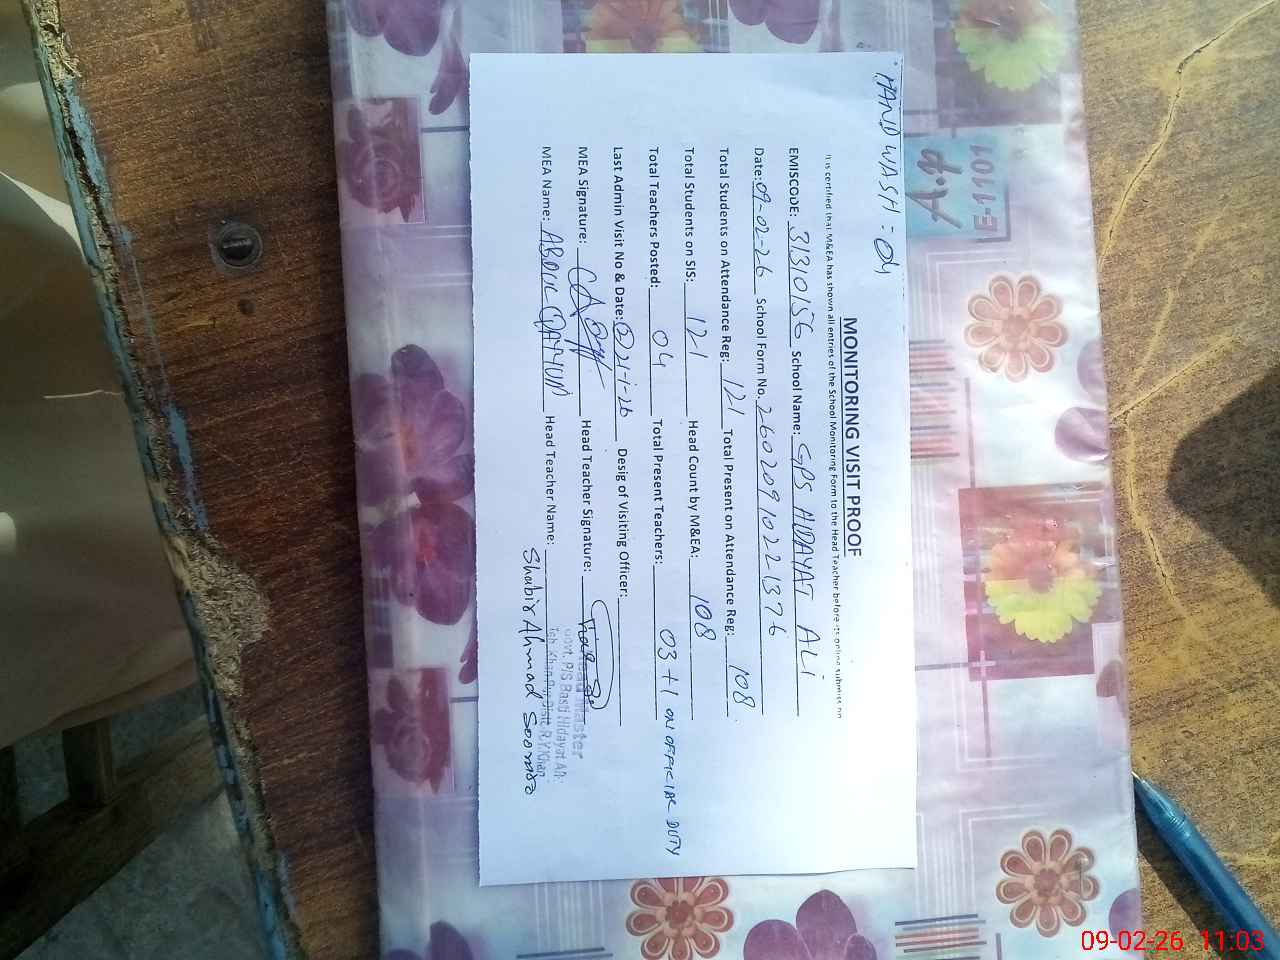 HAND WASH = 04
MONITORING VISIT PROOF
It is certified that M&EA has shown all entries of the School Monitoring Form to the Head Teacher before its online submission
EMISCODE: 31310156 School Name: GPS HIDAYAT ALI
Date: 09-02-26 School Form No. 26020910221376
Total Students on Attendance Reg: 121 Total Present on Attendance Reg: 108
Total Students on SIS: 121 Head Count by M&EA: 108
Total Teachers Posted: 04 Total Present Teachers: 03 +1 ON OFFICIAL DUTY
Last Admin Visit No & Date: (2) 21-1-26 Desig of Visiting Officer:
MEA Signature: Head Teacher Signature:
MEA Name: ABDUL QAYYUM Head Teacher Name: Shabir Ahmad Soomro
Head Master
Govt. P/S Basti Hidayat Ali
Teh. Khan Pur Distt. R.Y.Khan
A.P
E-1101
09-02-26 11:03